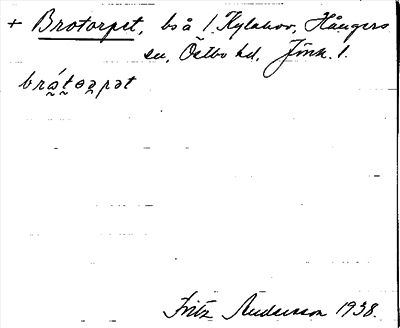 + Brotorpet, bs å /. Kylahov, Hångers
sn, Östbo hd, Jönk. l.
brát̰ɵa̰pət
Fritz Andersson 1938.